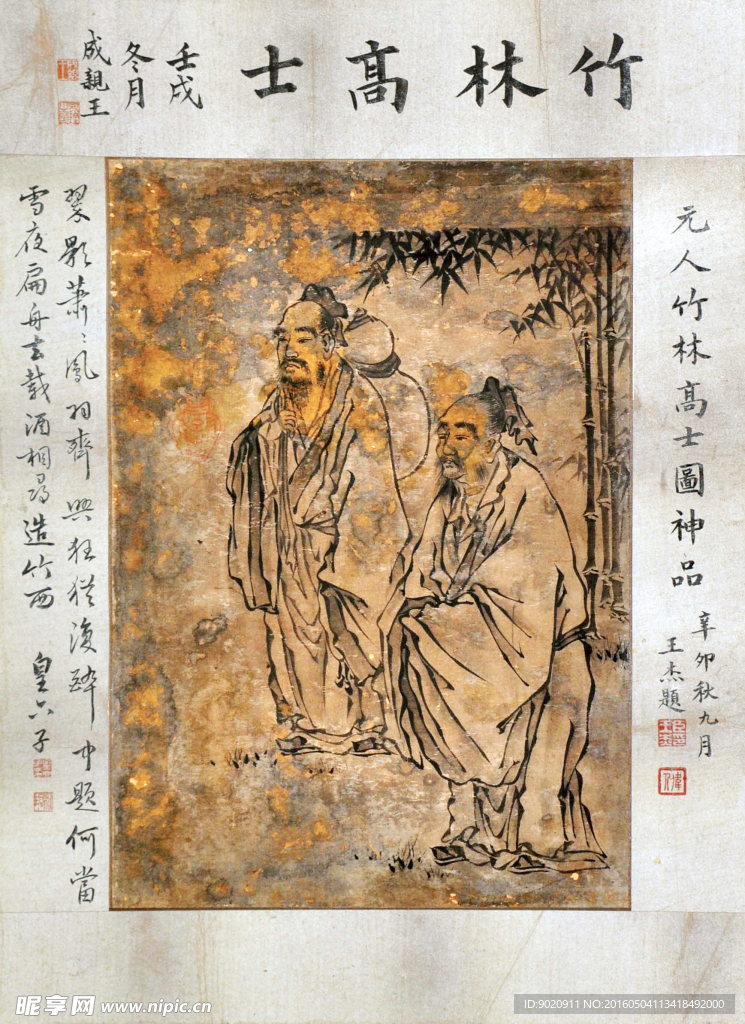 竹林高士
壬戌
冬月
成親王
元人竹林高士圖神品
辛卯秋九月
王杰題
翠影蕭〻鳳羽齊興狂猶復醉中題何當
雪夜扁舟去載酒相尋造竹西
皇六子
昵享网 www.nipic.cn
ID:9020911 NO:20160504113418492000